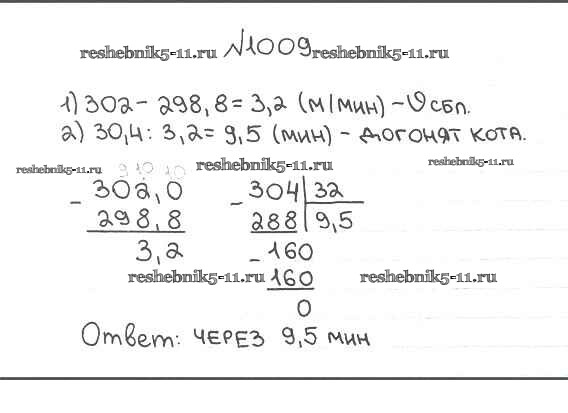 reshebnik5-11.ru №1009 reshebnik5-11.ru
1) 302 - 298,8 = 3,2 (м/мин) - υ сбл.
2) 30,4 : 3,2 = 9,5 (мин) - догонят кота.
reshebnik5-11.ru 9 10 10 reshebnik5-11.ru reshebnik5-11.ru
- 302,0 - 304 | 32
298,8 288 | 9,5
3,2 - 160
reshebnik5-11.ru 160 reshebnik5-11.ru
0
Ответ: через 9,5 мин